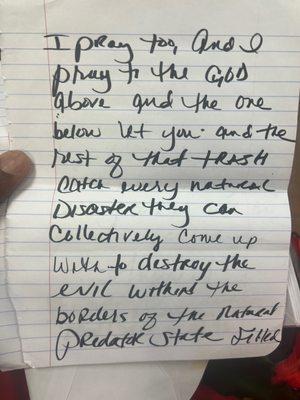 I pray too, And I
pray to the GOD
above and the one
below let you. and the
rest of that TRASH
Catch every natural
Disaster they can
Collectively Come up
with to destroy the
evil within the
borders of the Natural
Predator State Filled